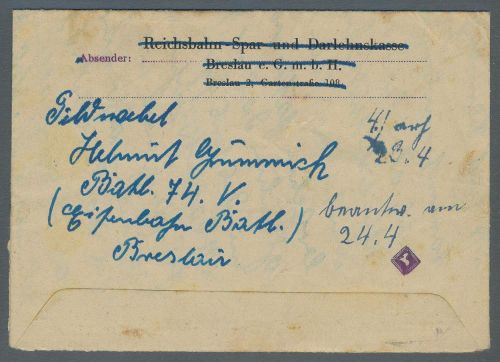 Reichsbahn-Spar- und Darlehnskasse
Absender:
Breslau e. G. m. b. H.
Breslau 2, Gartenstraße 108
Feldwebel
Helmut
Batl. 74. V.
(Eisenbahn Batl.)
Breslau
23.4
beantw. am
24.4